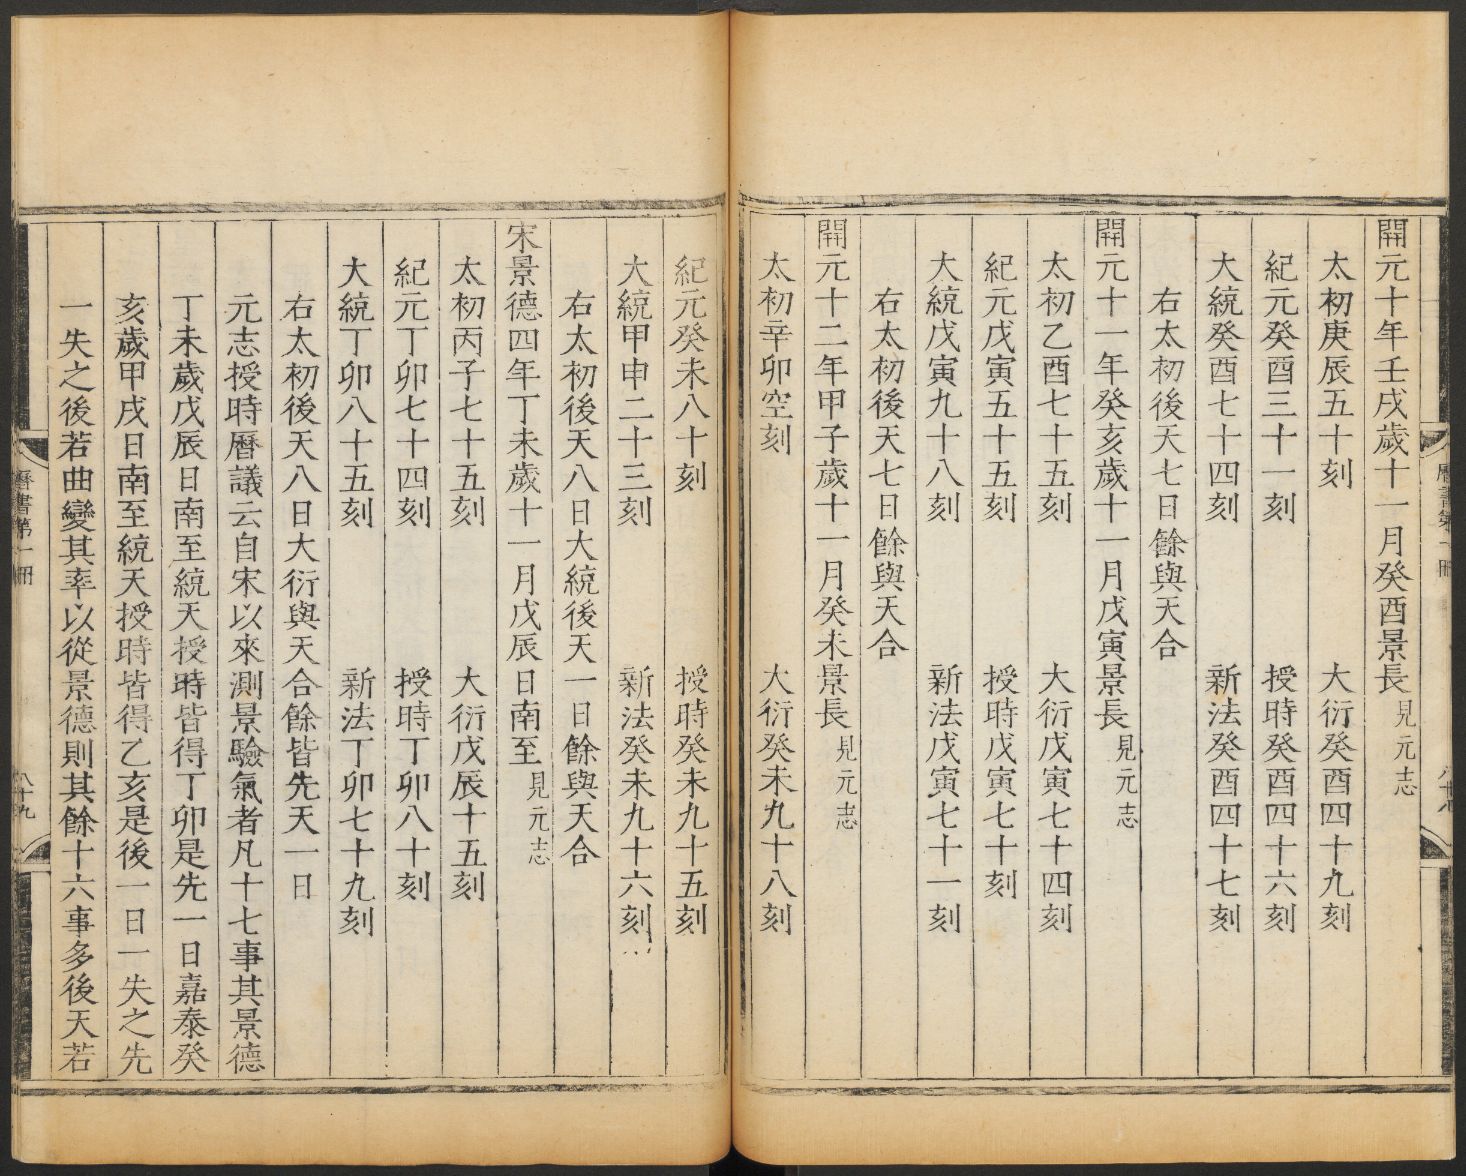 開元十年壬戌歲十一月癸酉景長見元志
太初庚辰五十刻　大衍癸酉四十九刻
紀元癸酉三十一刻　授時癸酉四十六刻
大統癸酉七十四刻　新法癸酉四十七刻
右太初後天七日餘與天合
開元十一年癸亥歲十一月戊寅景長見元志
太初乙酉七十五刻　大衍戊寅七十四刻
紀元戊寅五十五刻　授時戊寅七十刻
大統戊寅九十八刻　新法戊寅七十一刻
右太初後天七日餘與天合
開元十二年甲子歲十一月癸未景長見元志
太初辛卯空刻　大衍癸未九十八刻
紀元癸未八十刻　授時癸未九十五刻
大統甲申二十三刻　新法癸未九十六刻
右太初後天八日大統後天一日餘與天合
宋景德四年丁未歲十一月戊辰日南至見元志
太初丙子七十五刻　大衍戊辰十五刻
紀元丁卯七十四刻　授時丁卯八十刻
大統丁卯八十五刻　新法丁卯七十九刻
右太初後天八日大衍與天合餘皆先天一日
元志授時曆議云自宋以來測景驗氣者凡十七事其景德
丁未歲戊辰日南至統天授時皆得丁卯是先一日嘉泰癸
亥歲甲戌日南至統天授時皆得乙亥是後一日一失之先
一失之後若曲變其率以從景德則其餘十六事多後天若
曆書第一冊
八十九